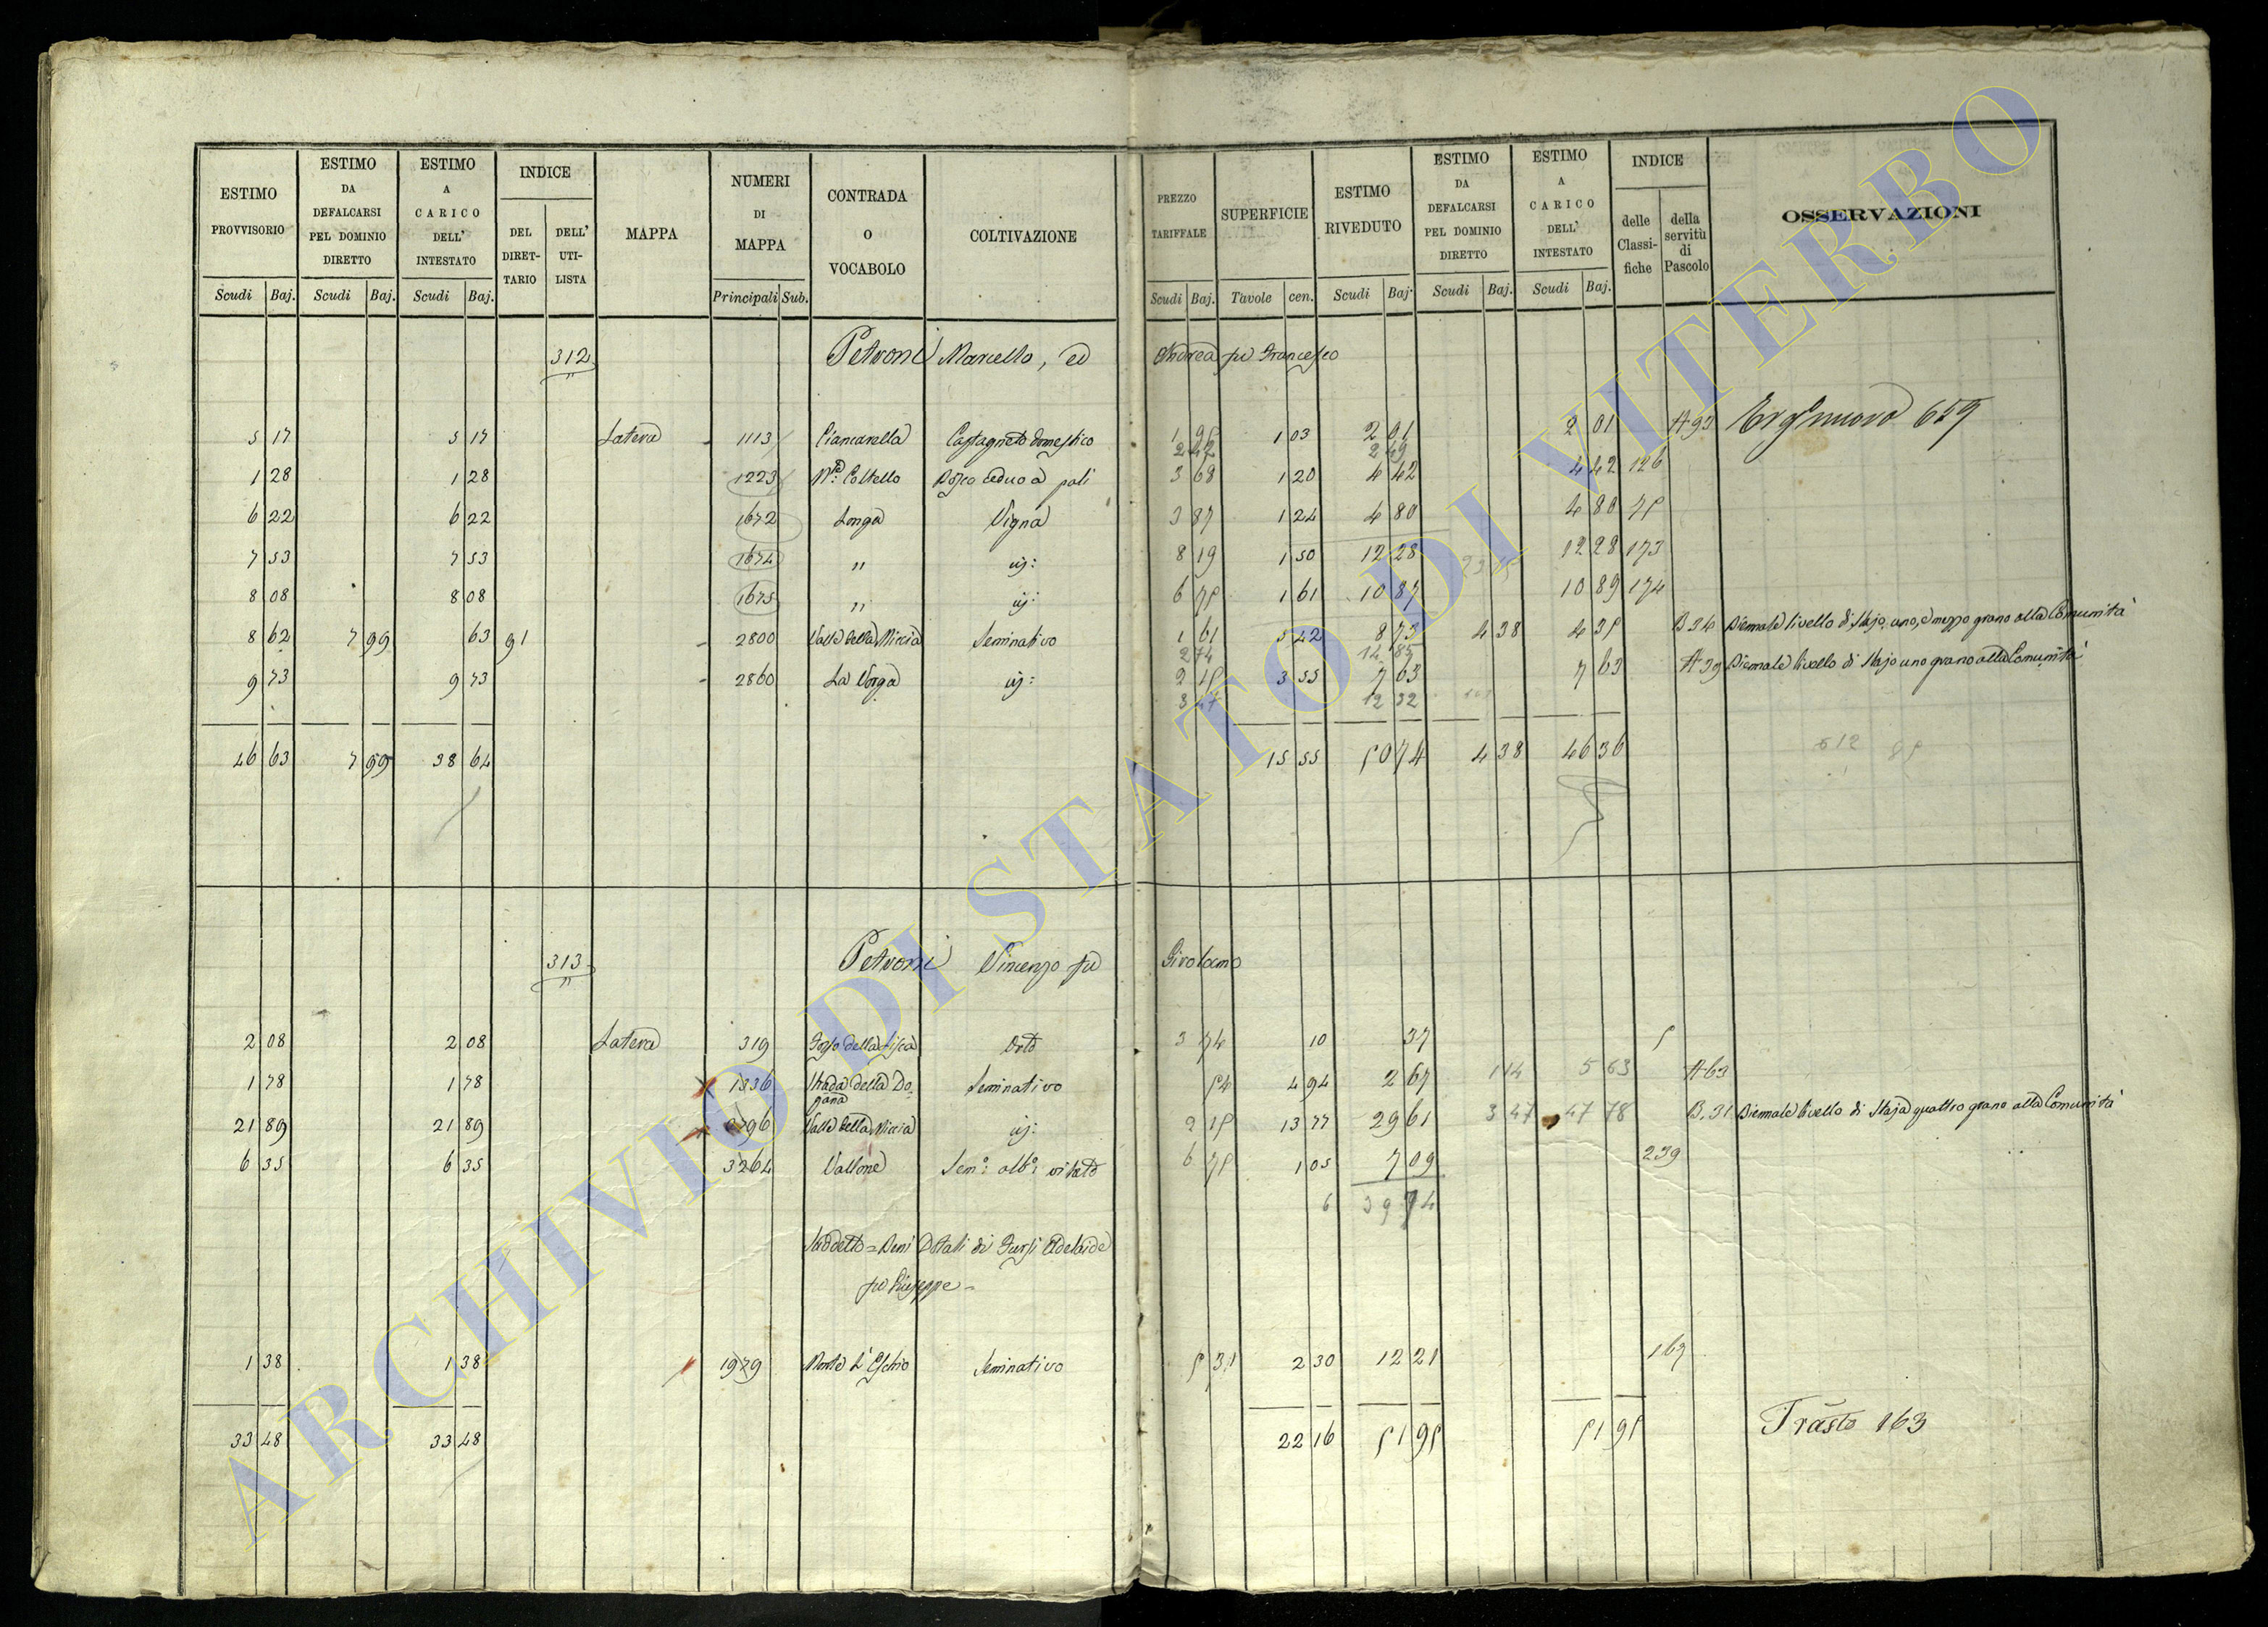 ESTIMO PROVVISORIO | ESTIMO DA DEFALCARSI PEL DOMINIO DIRETTO | ESTIMO A CARICO DELL' INTESTATO | INDICE DEL DIRETTARIO | DELL' UTILISTA | MAPPA | NUMERI DI MAPPA | CONTRADA O VOCABOLO | COLTIVAZIONE | PREZZO TARIFFALE | SUPERFICIE | ESTIMO RIVEDUTO | ESTIMO DA DEFALCARSI PEL DOMINIO DIRETTO | ESTIMO A CARICO DELL' INTESTATO | INDICE delle Classifiche | della servitù di Pascolo | OSSERVAZIONI
Scudi Baj. Scudi Baj. Scudi Baj. Principali Sub. Scudi Baj. Tavole cen. Scudi Baj. Scudi Baj. Scudi Baj.
312 Petroni Marcello, ed Andrea fu Francesco
5 17 5 17 Latera 1113 Ciancarella Castagneto domestico 1 95 1 03 2 01 2 01 A 93 659
2 42 2 49
1 28 1 28 1223 Coltello Bosco ceduo a pali 3 68 1 20 4 42 4 42 126
6 22 6 22 1672 Longa Vigna 3 87 1 24 4 80 4 80 75
7 53 7 53 1674 " id: 8 19 1 50 12 28 12 28 173
8 08 8 08 1675 " id: 6 75 1 61 10 87 10 89 174
8 62 7 99 63 91 2800 Valle della Miccia Seminativo 1 61 5 42 8 73 4 38 4 35 B 34 Biennale livello di Stajo uno, e mezzo grano alla Comunità
2 74 14 85
9 73 9 73 2860 La Vorga id: 2 15 3 55 7 63 7 63 A 39 Biennale livello di Stajo uno grano alla Comunità
3 47 12 32
46 63 7 99 38 64 15 55 50 74 4 38 46 36
313 Petroni Vincenzo fu Girolamo
2 08 2 08 Latera 319 Fosso della Orto 3 74 10 37 5
1 78 1 78 1336 Strada della Dogana Seminativo 54 4 94 2 67 1 14 5 63 A 63
21 89 21 89 2796 Valle della Miccia id: 2 15 13 77 29 61 3 47 47 78 B. 31 Biennale livello di Staja quattro grano alla Comunità
6 35 6 35 3264 Vallone Sem: alb: vitato 6 75 1 05 7 09 239
6 39 74
Suddetto = Beni Dotali di Adelaide
fu Giuseppe =
1 38 1 38 1979 Monte L'Eschio Seminativo 5 31 2 30 12 21 167
33 48 33 48 22 16 51 95 51 95 Trasto 163
ARCHIVIO DI STATO DI VITERBO